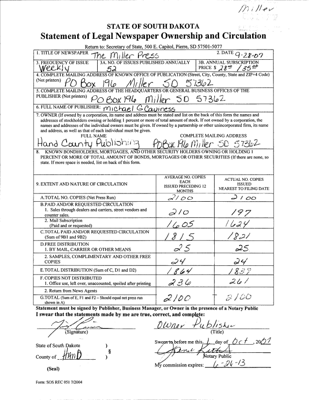 Miller
STATE OF SOUTH DAKOTA
Statement of Legal Newspaper Ownership and Circulation
Return to: Secretary of State, 500 E. Capitol, Pierre, SD 57501-5077
1. TITLE OF NEWSPAPER The Miller Press 2. DATE 9-28-07
3. FREQUENCY OF ISSUE Weekly 3A. NO. OF ISSUES PUBLISHED ANNUALLY 52 3B. ANNUAL SUBSCRIPTION PRICE $ 28
4. COMPLETE MAILING ADDRESS OF KNOWN OFFICE OF PUBLICATION (Street, City, County, State and ZIP+4 Code)
(Not Printers) PO Box 196 Miller SD 57362
5. COMPLETE MAILING ADDRESS OF THE HEADQUARTERS OR GENERAL BUSINESS OFFICES OF THE
PUBLISHER (Not Printers) PO Box 196 Miller SD 57362
6. FULL NAME OF PUBLISHER: Michael G Caviness
7. OWNER (If owned by a corporation, its name and address must be stated and list on the back of this form the names and
address of stockholders owning or holding 1 percent or more of total amount of stock. If not owned by a corporation, the
names and addresses of the individual owners must be given. If owned by a partnership or other unincorporated firm, its name
and address, as well as that of each individual must be given.
FULL NAME COMPLETE MAILING ADDRESS
Hand County Publishing PO Box 196 Miller SD 57362
8. KNOWN BONDHOLDERS, MORTGAGES, AND OTHER SECURITY HOLDERS OWNING OR HOLDING 1
PERCENT OR MORE OF TOTAL AMOUNT OF BONDS, MORTGAGES OR OTHER SECURITIES (If there are none, so
state. If more space is needed, list on back of this form.
9. EXTENT AND NATURE OF CIRCULATION AVERAGE NO. COPIES EACH ISSUED PRECEDING 12 MONTHS ACTUAL NO. COPIES ISSUED NEAREST TO FILING DATE
A. TOTAL NO. COPIES (Net Press Run) 2100 2100
B. PAID AND/OR REQUESTED CIRCULATION
1. Sales through dealers and carriers, street vendors and
counter sales 210 197
2. Mail Subscription
(Paid and or requested) 1605 1624
C. TOTAL PAID AND/OR REQUESTED CIRCULATION
(Sum of 9B1 and 9B2) 1815 1821
D. FREE DISTRIBUTION
1. BY MAIL, CARRIER OR OTHER MEANS 25 25
2. SAMPLES, COMPLIMENTARY AND OTHER FREE
COPIES 24 24
E. TOTAL DISTRIBUTION (Sum of C, D1 and D2) 1864
F. COPIES NOT DISTRIBUTED
1. Office use, left over, unaccounted, spoiled after printing 236 261
2. Return from News Agents
G. TOTAL (Sum of E, F1 and F2 - Should equal net press run
shown in A) 2100 2100
Statement must be signed by Publisher, Business Manager, or Owner in the presence of a Notary Public
I swear that the statements made by me are true, correct, and complete:
Owner Publisher
(Signature) (Title)
State of South Dakota )
§ Sworn to before me this 1 day of Oct 2007
County of HAND )
Notary Public
(Seal) My commission expires: 6-26-13
Form: SOS REC 051 7/2004